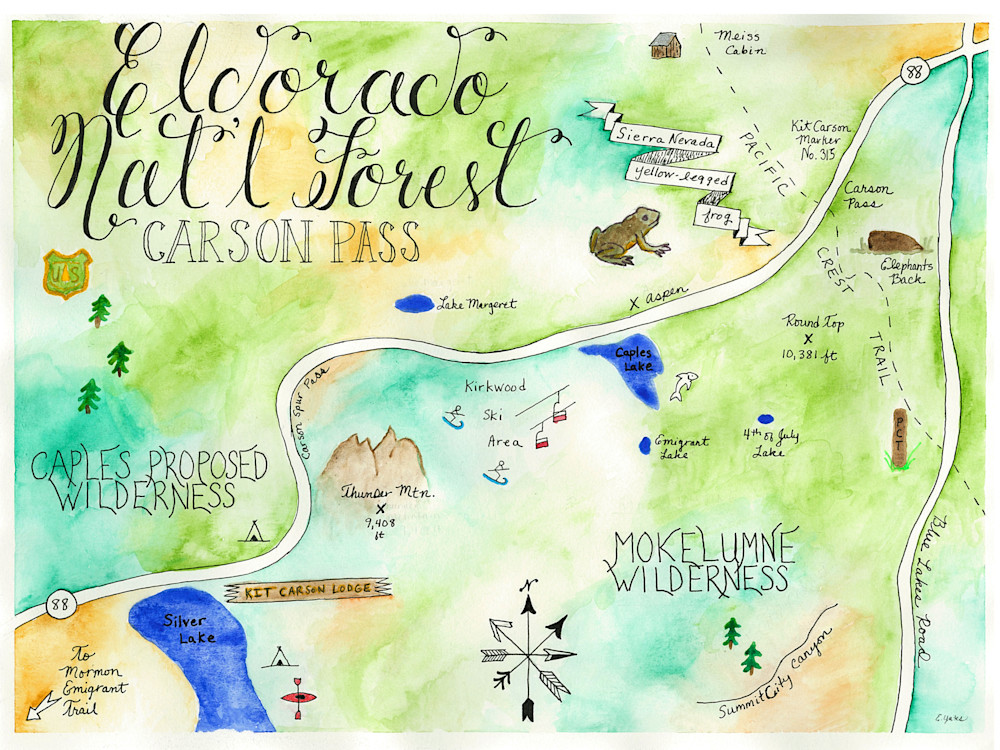 Eldorado
Nat'l Forest
CARSON PASS
US
Meiss
Cabin
88
Sierra Nevada
yellow-legged
frog
PACIFIC
CREST
TRAIL
Kit Carson
Marker
No. 315
Carson
Pass
Elephants
Back
Lake Margeret
X Aspen
Round Top
X
10,381 ft
Caples
Lake
Carson Spur Pass
Kirkwood
Ski
Area
Emigrant
Lake
4th of July
Lake
PCT
CAPLES PROPOSED
WILDERNESS
Thunder Mtn.
X
9,408
ft
MOKELUMNE
WILDERNESS
Blue Lakes Road
KIT CARSON LODGE
88
Silver
Lake
N
To
Mormon
Emigrant
Trail
Summit City Canyon
E. Yates